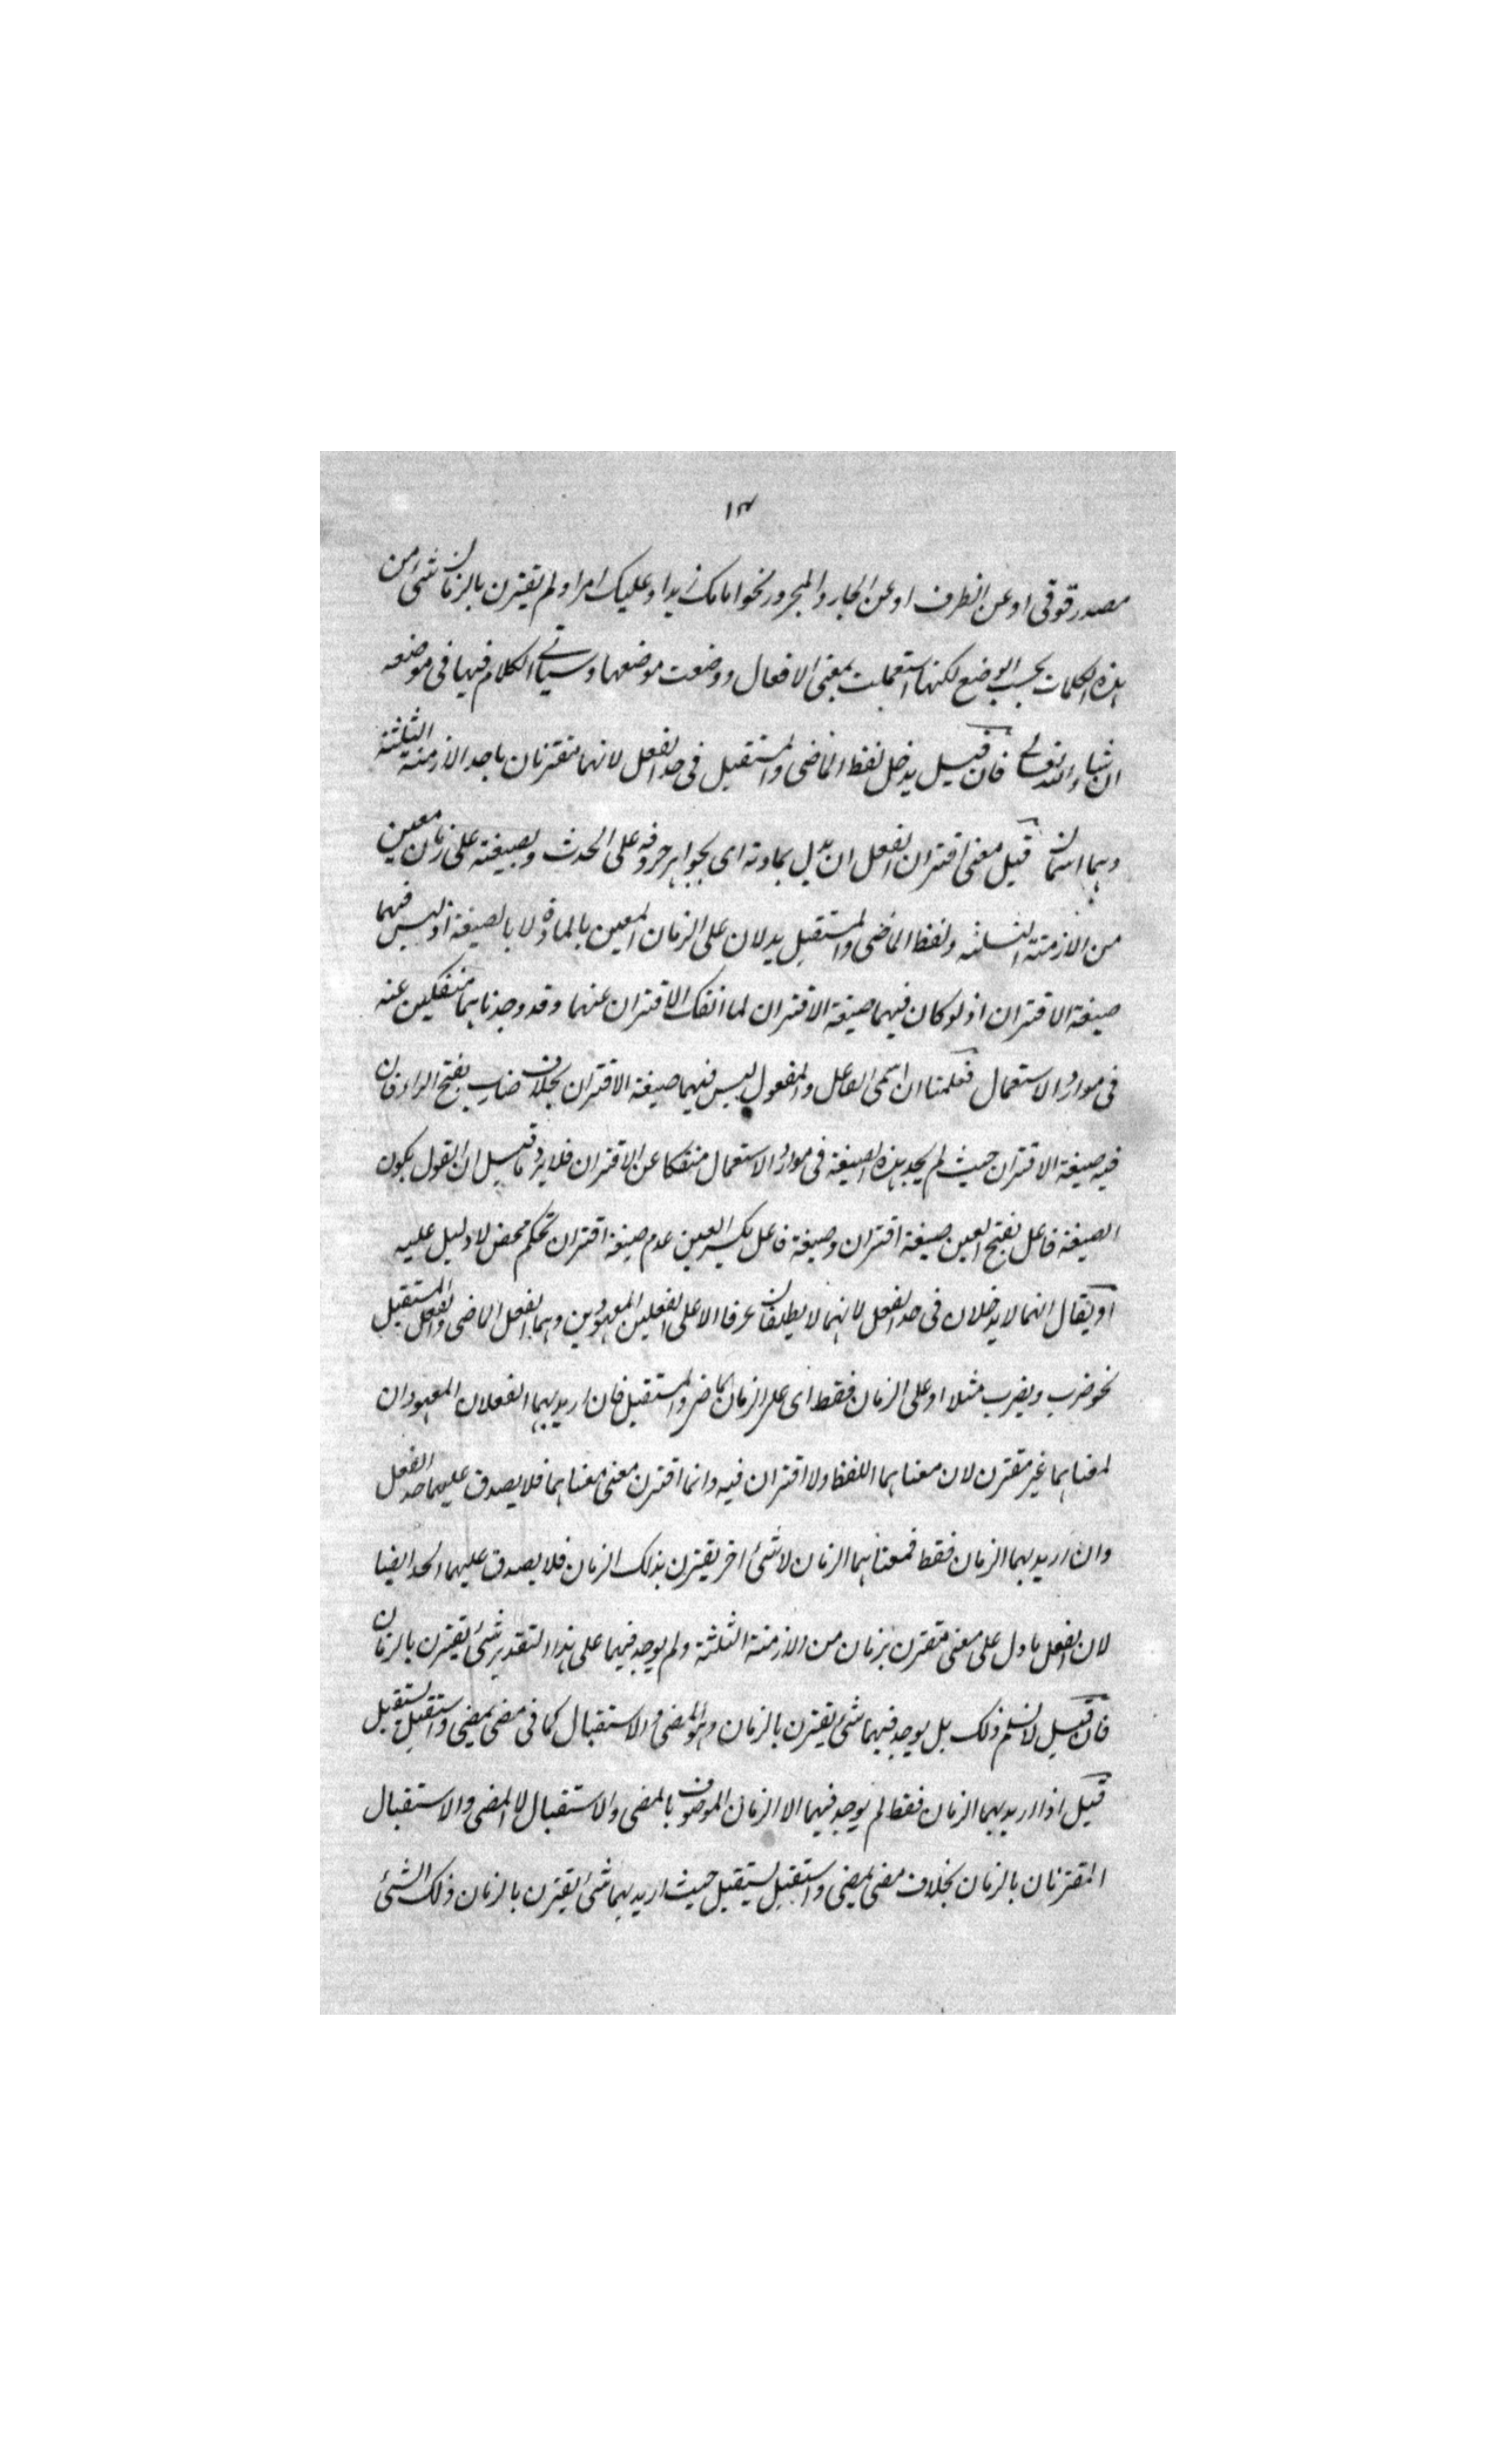 ١٣
مصدر قوقى او عن الظرف او عن الجار والمجرور نحو امامك زيدا و عليك امرا ولم يقترن بالزمان شئ من
هذه الكلمات بحسب الوضع لكنها استعملت بمعنى الافعال ووضعت موضعها وسياتى الكلام فيها فى موضعه
ان شاء الله تعالى فان قيل يدخل لفظ الماضى والمستقبل فى حد الفعل لانهما مقترنان باحد الازمنة الثلثة
وهما اسمان قيل معنى اقتران الفعل ان يدل بمادته اى بجواهر حروفه على الحدث وبصيغته على زمان معين
من الازمنة الثلثه ولفظ الماضى والمستقبل يدلان على الزمان المعين بالمادة لا بالصيغة اذ ليس فيهما
صيغة الاقتران اذ لو كان فيهما صيغة الاقتران لما انفك الاقتران عنهما وقد وجدناهما منفكين عنه
فى موارد الاستعمال فعلمنا ان اسمى الفاعل والمفعول ليس فيهما صيغة الاقتران بخلاف ضارب بفتح الراء فان
فيه صيغة الاقتران حيث لم يجد هذه الصيغة فى موارد الاستعمال منفكا عن الاقتران فلا يرد ما قيل ان القول بكون
الصيغة فاعل بفتح العين صيغة اقتران وصيغة فاعل بكسر العين عدم صيغة اقتران تحكم محض لا دليل عليه
او يقال انهما لا يدخلان فى حد الفعل لانهما لا يطلقان عرفا الا على الفعلين المعهودين وهما الفعل الماضى والفعل المستقبل
نحو ضرب ويضرب مثلا او على الزمان فقط اى على الزمان الماضى والمستقبل فان اريد بهما الفعلان المعهودان
لمعناهما غير مقترن لان معناهما اللفظ ولا اقتران فيه وانما اقترن معنى معناهما فلا يصدق عليهما حد الفعل
وان اريد بهما الزمان فقط فمعناهما الزمان لا شئ اخر يقترن بذلك الزمان فلا يصدق عليهما الحد ايضا
لان الفعل ما دل على معنى مقترن بزمان من الازمنة الثلثة ولم يوجد فيهما على هذا التقدير شئ يقترن بالزمان
فان قيل لا نسلم ذلك بل يوجد فيهما شئ يقترن بالزمان وهو المضى والاستقبال كما فى مضى يمضى واستقبل يستقبل
قيل اذا اريد بهما الزمان فقط لم يوجد فيهما الا الزمان الموصوف بالمضى والاستقبال لا المضى والاستقبال
المقترنان بالزمان بخلاف مضى يمضى واستقبل يستقبل حيث اريد بهما شئ يقترن بالزمان وذلك الشئ